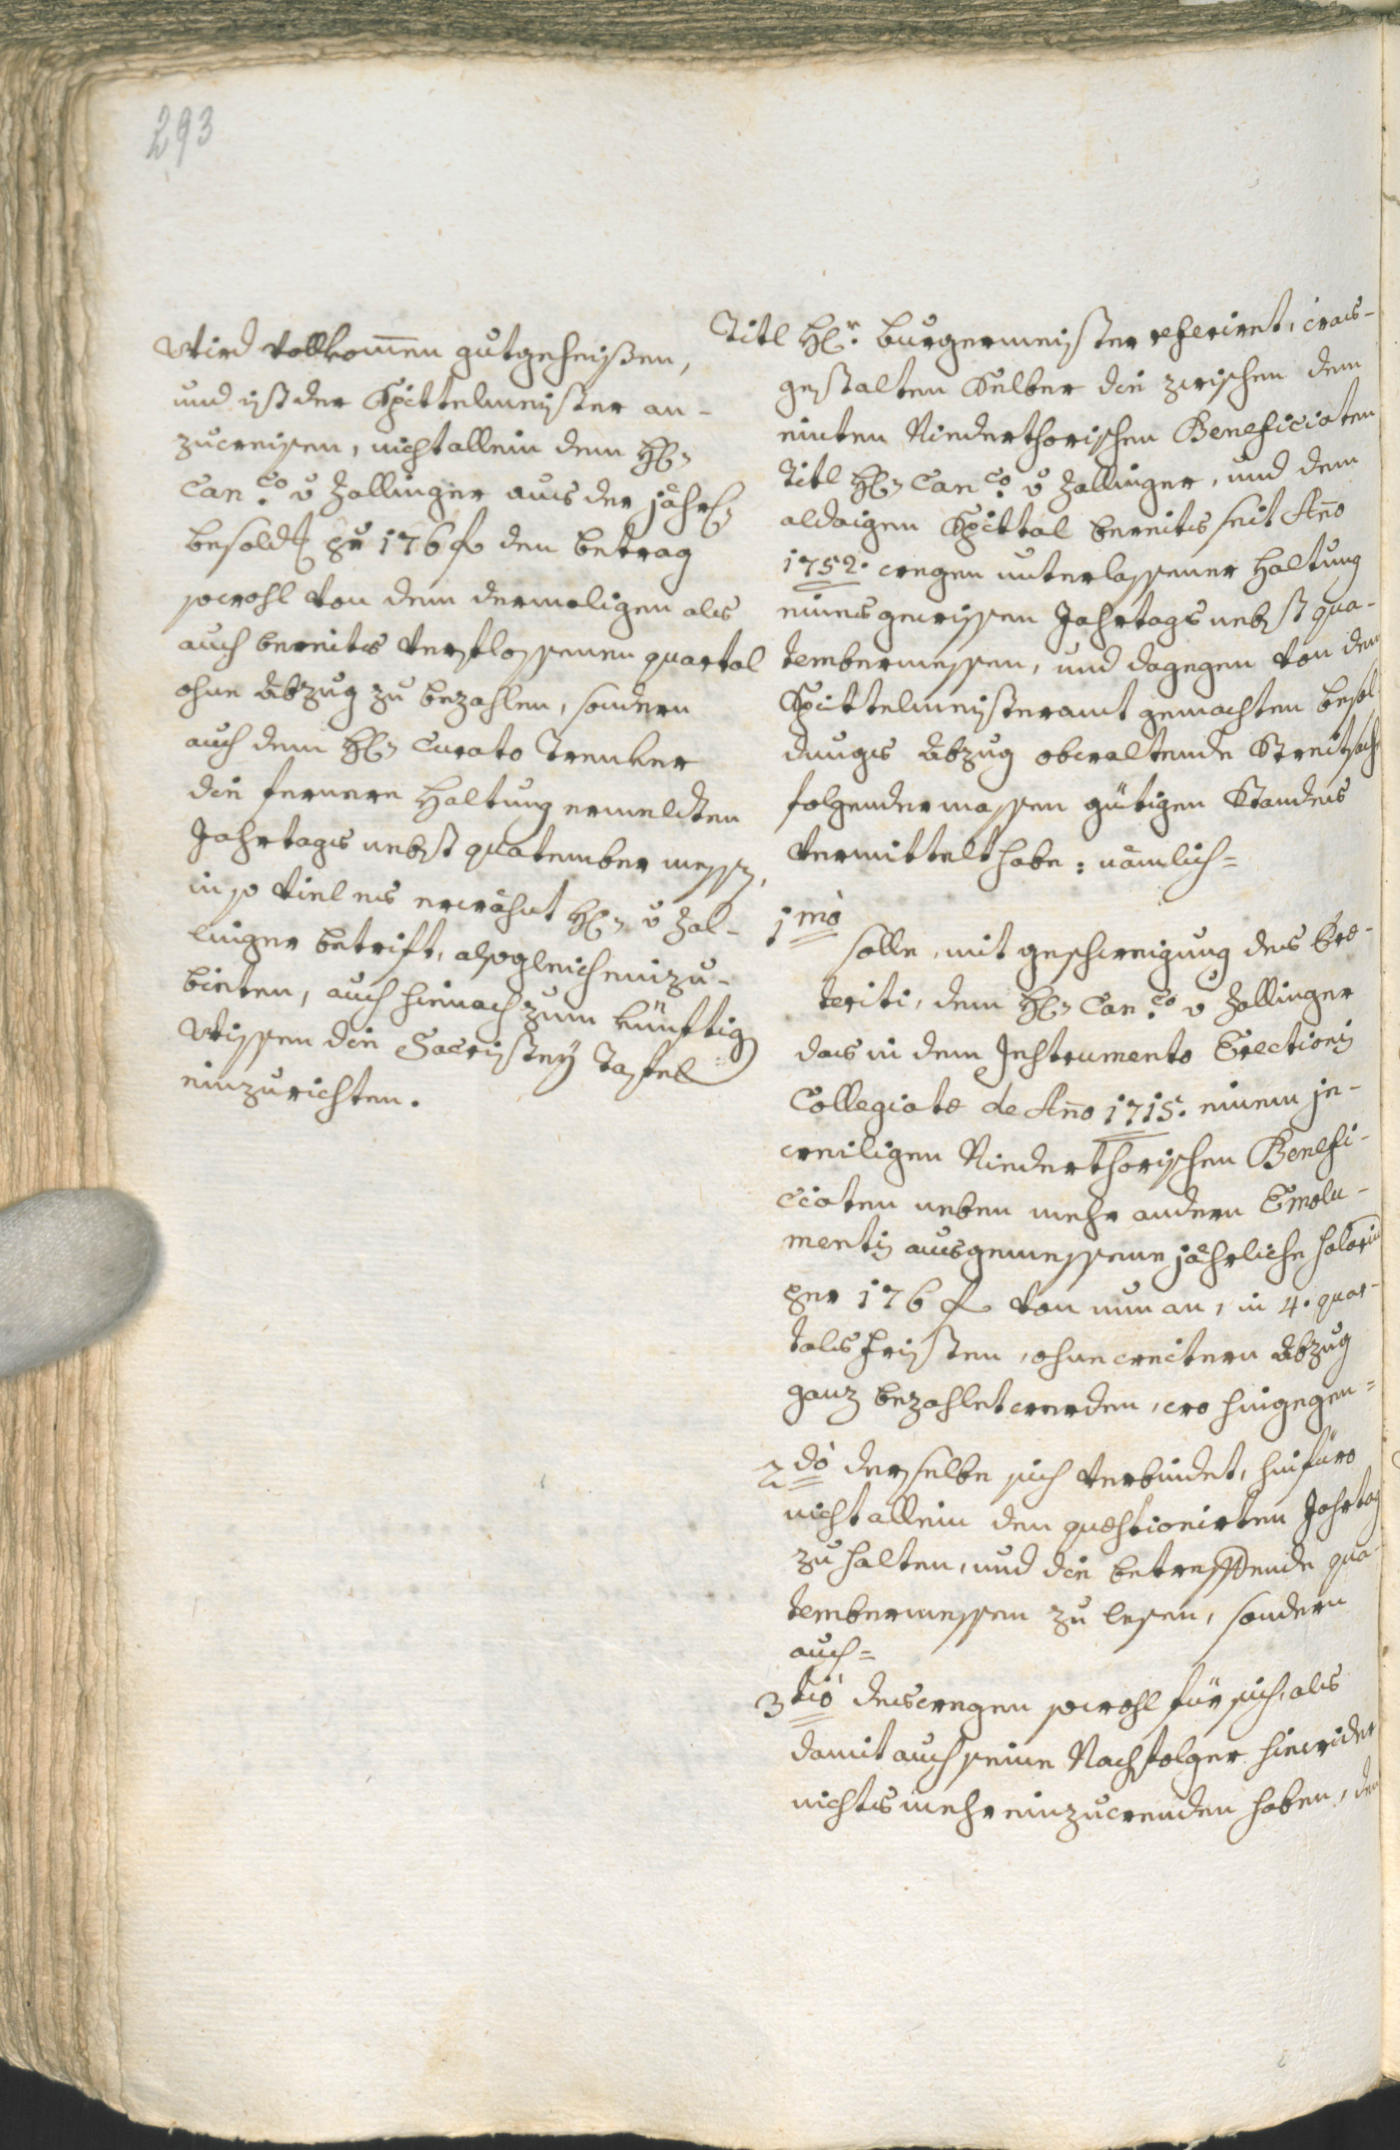 293
Wird vollkom̄en gutgeheissen,
und ist der Spittelmeister an-
zuweisen, nicht allein dem H:
Can:co v Zallinger aus der jährl:
besold: per 176 f den betrag
sowohl von dem dermaligen als
auch bereits verflossenen quartal
ohne Abzug zu bezahlen, sondern
auch dem H: Curato Trenker
die fernere Haltung ermeldten
Jahrtags nebst quatember messen,
in so viel es erwähnt H: v Zal-
linger betrift, alsogleich einzu-
bieten, auch hienach zum künftig
Wissen die Sacristey Tafel
einzurichten.
Titl Hr. burgermeister referirt, was-
gestalten Selber die zwischen dem
einten Niederthorischen Beneficiaten
Titl H: Can:co v Zallinger, und dem
aldaigen Spittal bereits seit Año
1752. wegen unterlassener Haltung
eines gewissen Jahrtags nebst qua-
tembermessen, und dagegen von dem
Spittelmeisteramt gemachten besol-
dungs Abzug obwaltende Streitsach
folgendermassen gütigen Standes
vermittelt habe: nämlich=
1mò
solle, mit geschweigung des Prę-
teriti, dem H: Can:co v Zallinger
das in dem Instrumento Erectionis
Collegiatę de Año 1715. einem je-
weiligen Niederthorischen Benefi-
ciaten neben mehr andern Emolu-
mentis ausgemessene jährliche Salarium
per 176 f von nun an, in 4. quar-
tals fristen, ohne weitern Abzug
ganz bezahlet werden, wo hingegen=
2dò derselbe sich verbindet, hinfüro
nicht allein den quęstionirten Jahrtag
zu halten, und die betreffende qua-
tembermessen zu lesen, sondern
auch=
3tiò deswegen sowohl für sich, als
damit auch seine Nachfolger hiewider
nichts mehr einzuwenden haben, den